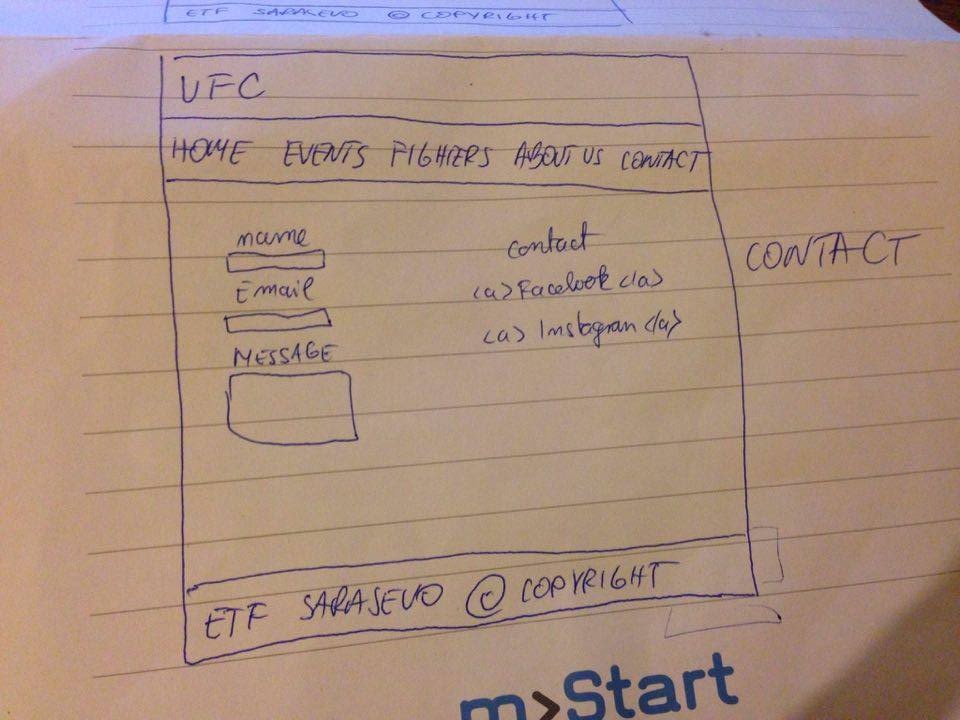 ETF SARAJEVO © COPYRIGHT
UFC
HOME EVENTS FIGHTERS ABOUT US CONTACT
name
contact
CONTACT
Email
<a>Facebook</a>
<a>Instagram</a>
MESSAGE
ETF SARAJEVO © COPYRIGHT
m>Start